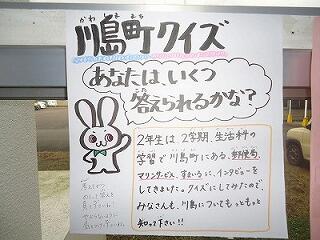 かわ じま まち
川島町クイズ
あなたは、いくつ
答えられるかな?
2年生は2学期、生活科の
学習で川島町にある、郵便局、
マリンサービス、すまいるに、インタビューを
してきました。クイズにしてみたので
みなさんも、川島についてもっともっと
知って下さい!!